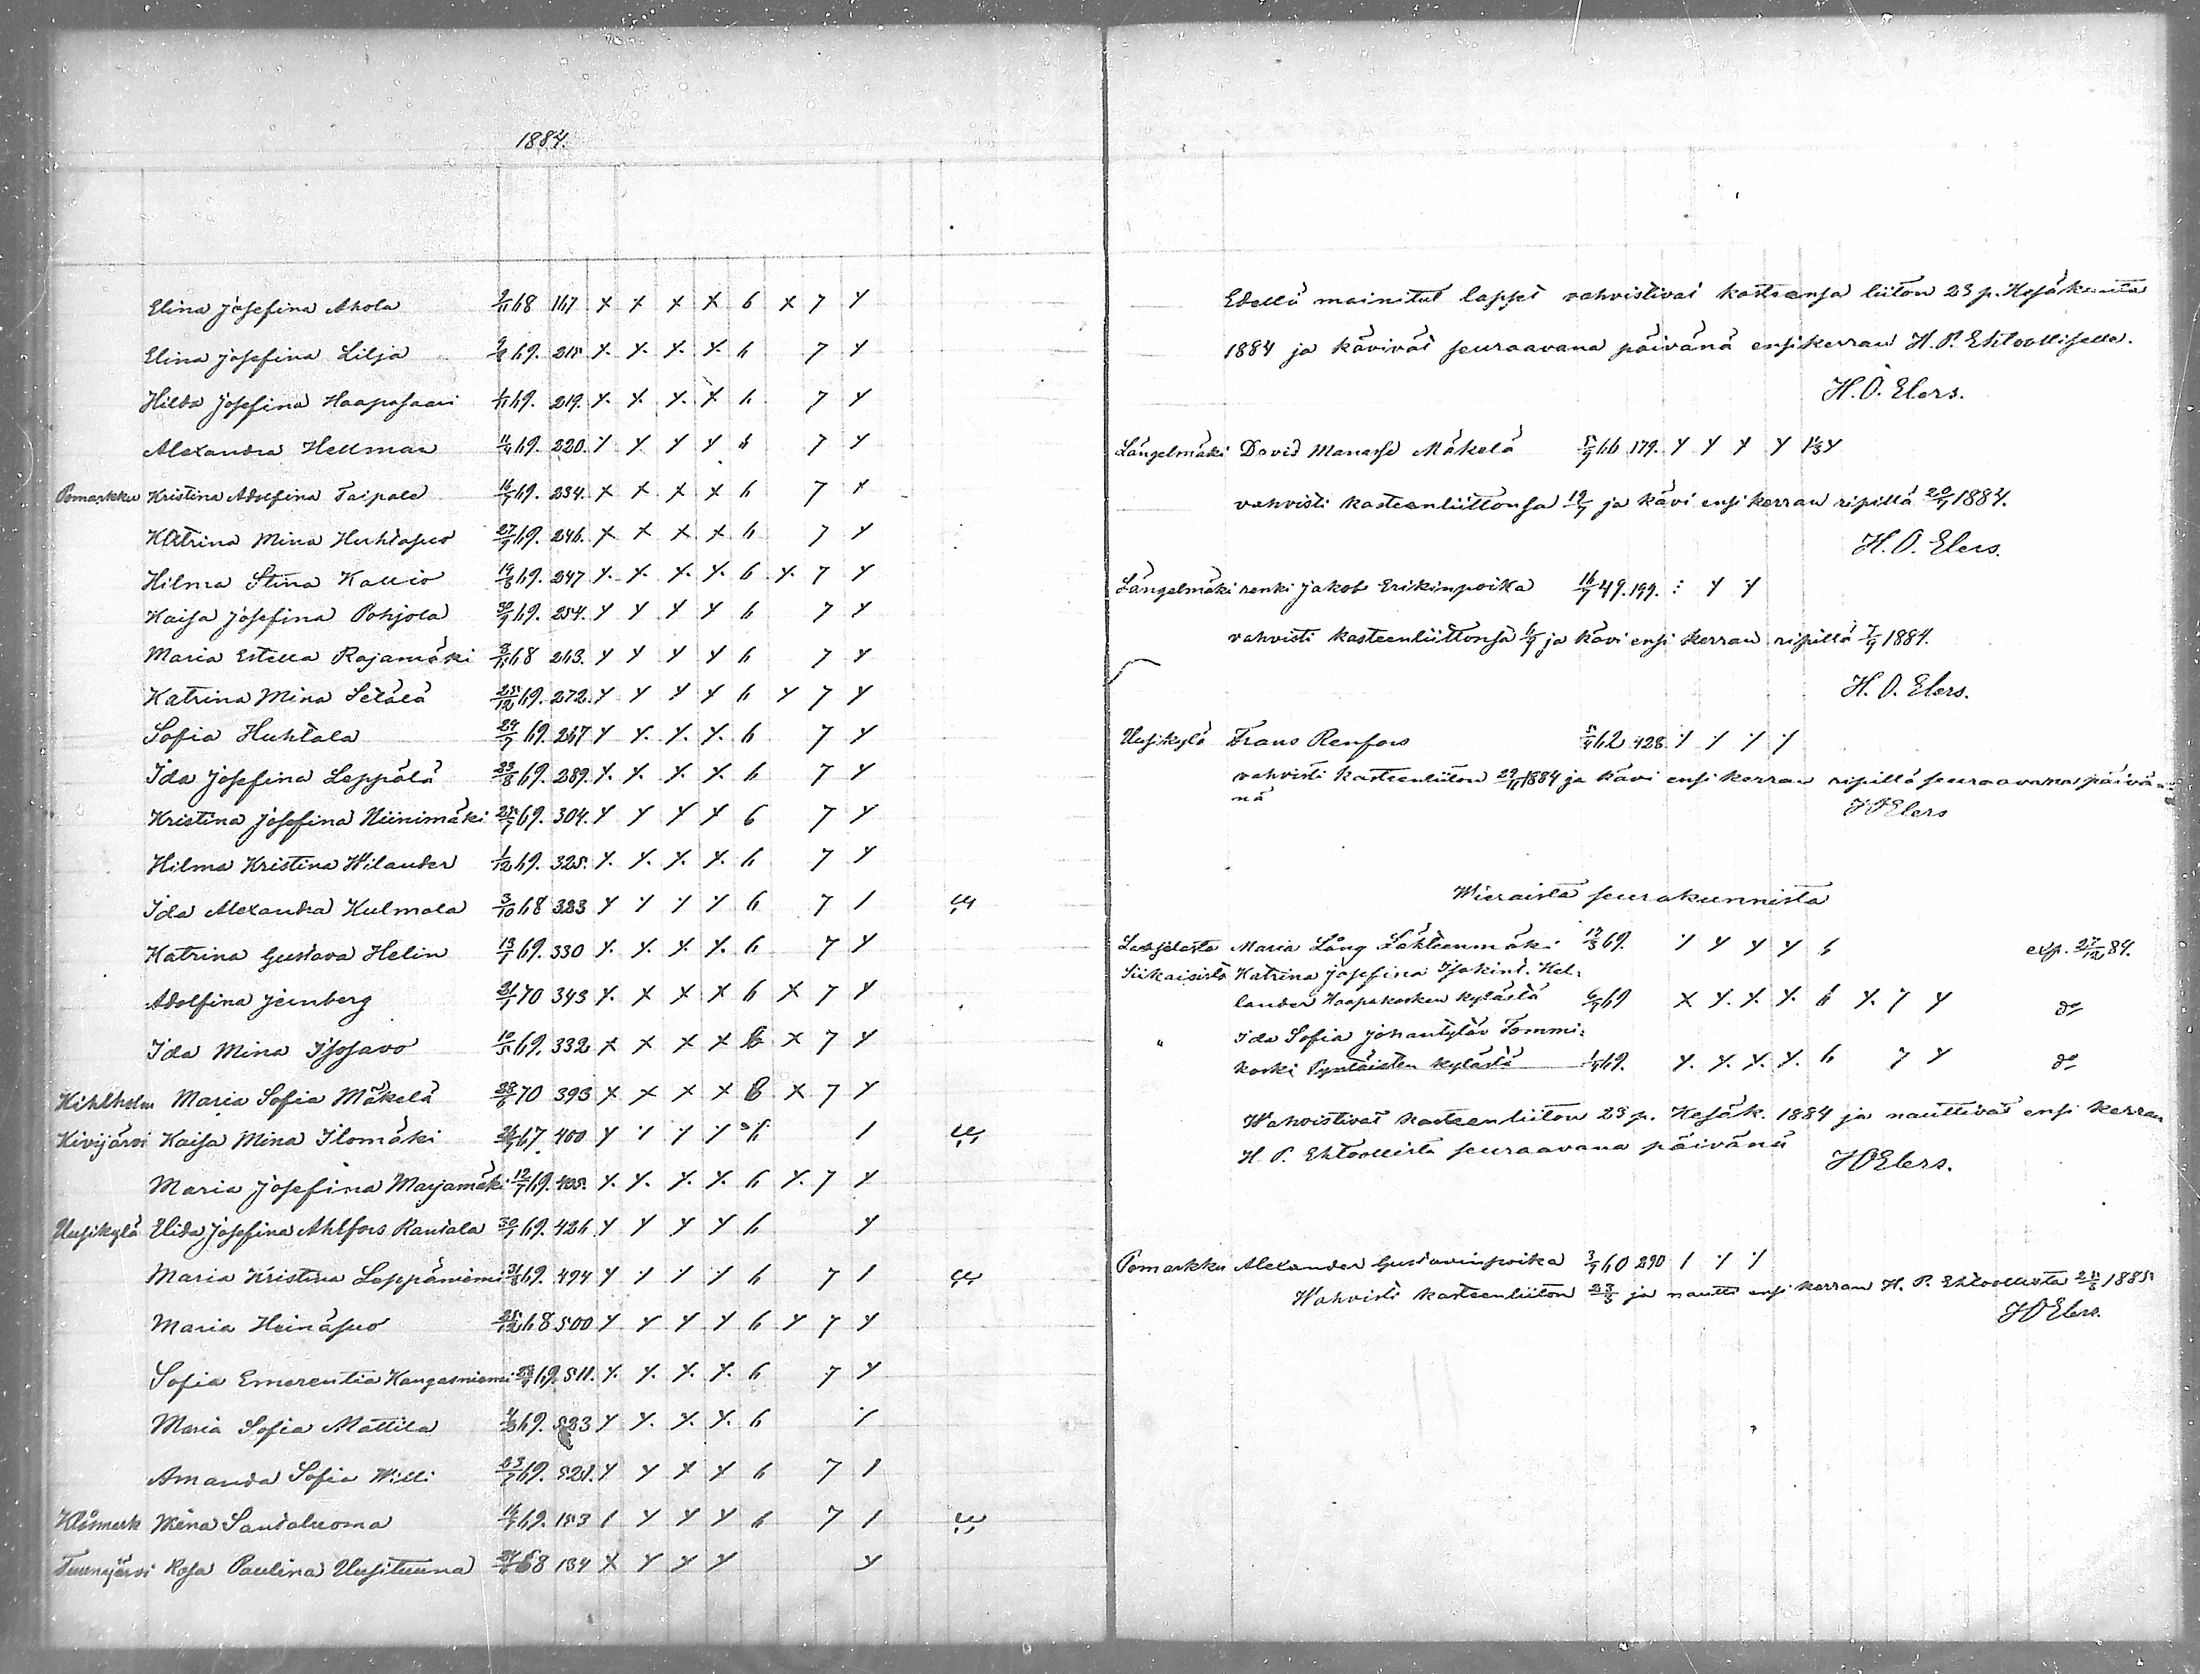 1884.
Elina Josefina Ahola 2/11 68 167 x x x x 6 x 7 y
Elina Josefina Lilja 69. 215 y. y. y. y. 6 7 y
Hilda Josefina Haapasaari 1/11 69. 219. y. y. y. y. 6 7 y
Alexandra Hellman 11/4 69. 220. y y y y 6 7 y
Pomarkku Kristina Adolfina Taipale 69. 234. x x x x 6 7 x
Katrina Mina Huhtasuo 27/9 69. 246. x x x x 6 7 y
Hilma Stina Kallio 19/8 69. 247 y. y. y. y. 6 y. 7 y
Kaisa Josefina Pohjola 69. 254. y y y y 6 7 y
Maria Estella Rajamäki 68 263. y y y y 6 7 y
Katrina Mina Setälä 25/12 69. 272. y y y y 6 y 7 y
Sofia Huhtala 69. 267 y y. y. y. 6 7 y
Ida Josefina Leppälä 23/8 69. 289. y. y. y. y. 6 7 y
Kristina Josefina Niinimäki 69. 304. y y y y 6 7 y
Hilma Kristina Wilander 1/12 69. 325. y. y. y. y. 6 7 y
Ida Alexandra Kulmala 3/10 68 323 y y y y 6 7 1
Katrina Gustava Helin 69. 330 y. y. y. y. 6 7 y
Adolfina Jernberg 70 343 y. x x x 6 x 7 y
Ida Mina Isosavo 69. 332 x x x x 6 x 7 y
Kihlholm Maria Sofia Mäkelä 70 393 x x x x 6 x 7 y
Kivijärvi Kaisa Mina Ilomäki 67. 400 y y y y 6 1
Maria Josefina Marjamäki 12/7 69. 405. y. y. y. y. 6 y. 7 y
Uusikylä Elida Josefina Ahlfors Rantala 69. 426 y y y y 6 y
Maria Kristina Leppäniemi 31/8 69. 494 y y y y 6 7 1
Maria Heinäsuo 25/12 68 500 y y y y 6 y 7 y
Sofia Emerentia Kangasniemi 69. 511. y. y. y. y. 6 7 y
Maria Sofia Mattila 69. 523 y y. y. y. 6 y
Amanda Sofia Willi 69. 521. y y x y 6 7 1
Klåsmark Mina Santaluoma 69. 153 1 y y y 6 7 1
Tuunajärvi Rosa Paulina Uusituuna 68 134 x y y y y
Edellä mainitut lapset vahvistivat kasteensa liiton 23 p. Kesäkuuta
1884 ja kävivät seuraavana päivänä ensikerran H. P. Ehtoollisella.
H. O. Elers.
Längelmäki David Manasse Mäkelä 5/9 66 179. y y y y
vahvisti kasteenliittonsa 19/7 ja kävi ensi kerran ripillä 20/7 1884.
H. O. Elers.
Längelmäki renki Jakob Erikinpoika 16/7 49. 199. : y y
vahvisti kasteenliittonsa 6/9 ja kävi ensi kerran ripillä 7/9 1884.
H. O. Elers.
Uusikylä Frans Renfors 62 428. y y y y
vahvisti kasteenliiton 29/11 1884 ja kävi ensi kerran ripillä seuraavana päivä-
nä
HOElers
Wieraista seurakunnista
Maria Lång Lähteenmäki 69. y y y y 6 exp. 27/12 84.
Siikaisista Katrina Josefina Isakint. Hel-
lander Haapakosken kylästä 69 x y. y. y. 6 y. 7 y do
" Ida Sofia Johantytär Tommi-
koski Pyntäisten kylästä 69. y. y. y. y. 6 7 y do
Wahvistivat kasteenliiton 23 p. Kesäk. 1884 ja nauttivat ensi kerran
H. P. Ehtoollista seuraavana päivänä
HOElers.
Pomarkku Alexander Gustavinpoika 3/7 60 290 1 y y
Wahvisti kasteenliiton 23/5 ja nautti ensi kerran H. P. Ehtoollista 24/5 1885
HOElers.